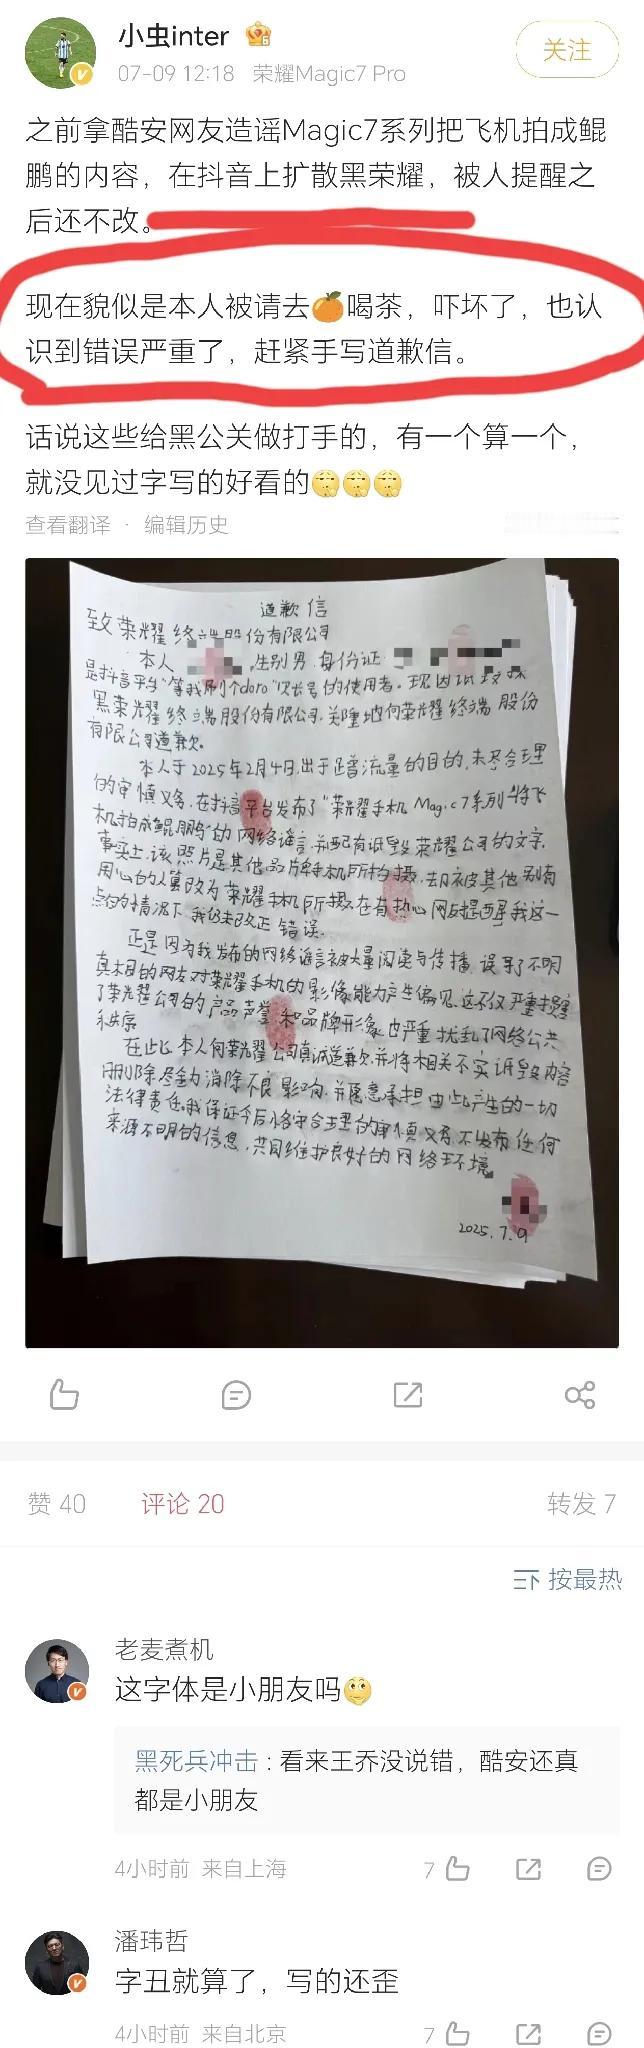 小虫inter
关注
07-09 12:18 荣耀Magic7 Pro
之前拿酷安网友造谣Magic7系列把飞机拍成鲲
鹏的内容，在抖音上扩散黑荣耀，被人提醒之
后还不改。
现在貌似是本人被请去🍊喝茶，吓坏了，也认
识到错误严重了，赶紧手写道歉信。
话说这些给黑公关做打手的，有一个算一个，
就没见过字写的好看的
查看翻译 · 编辑历史
道歉信
致荣耀终端股份有限公司
本人 性别男 身份证
是抖音平台"等我刷个doro"账号的使用者。现因
黑荣耀终端股份有限公司,关重地向荣耀终端股份
有限公司道歉。
本人于2025年2月4日,出于蹭流量的目的,未尽合理
的审慎义务,在抖音平台发布了"荣耀手机Magic7系列将飞
机拍成鲲鹏"的网络谣言,并配有诋毁荣耀公司的文字.
事实上,该照片是其他品牌手机所拍摄,却被其他别有
用心的人篡改为荣耀手机所摄.在有热心网友提醒我这一
点的情况下,我仍未改正错误.
正是因为我发布的网络谣言被大量阅读与传播,误导了不明
真相的网友对荣耀手机的影像能力产生偏见.这不仅严重损害
了荣耀公司的产品声誉和品牌形象,也严重扰乱了网络公共
秩序
在此,本人向荣耀公司真诚道歉,并将相关不实诋毁内容
删除,尽全力消除不良影响,并愿意承担由此产生的一切
法律责任.我保证今后恪守合理的审慎义务,不发布任何
来源不明的信息,共同维护良好的网络环境
2025.7.9
赞 40
评论 20
转发 7
按最热
老麦煮机
这字体是小朋友吗
黑死兵冲击：看来王乔没说错，酷安还真
都是小朋友
4小时前 来自上海
7
潘玮哲
字丑就算了，写的还歪
4小时前 来自北京
7